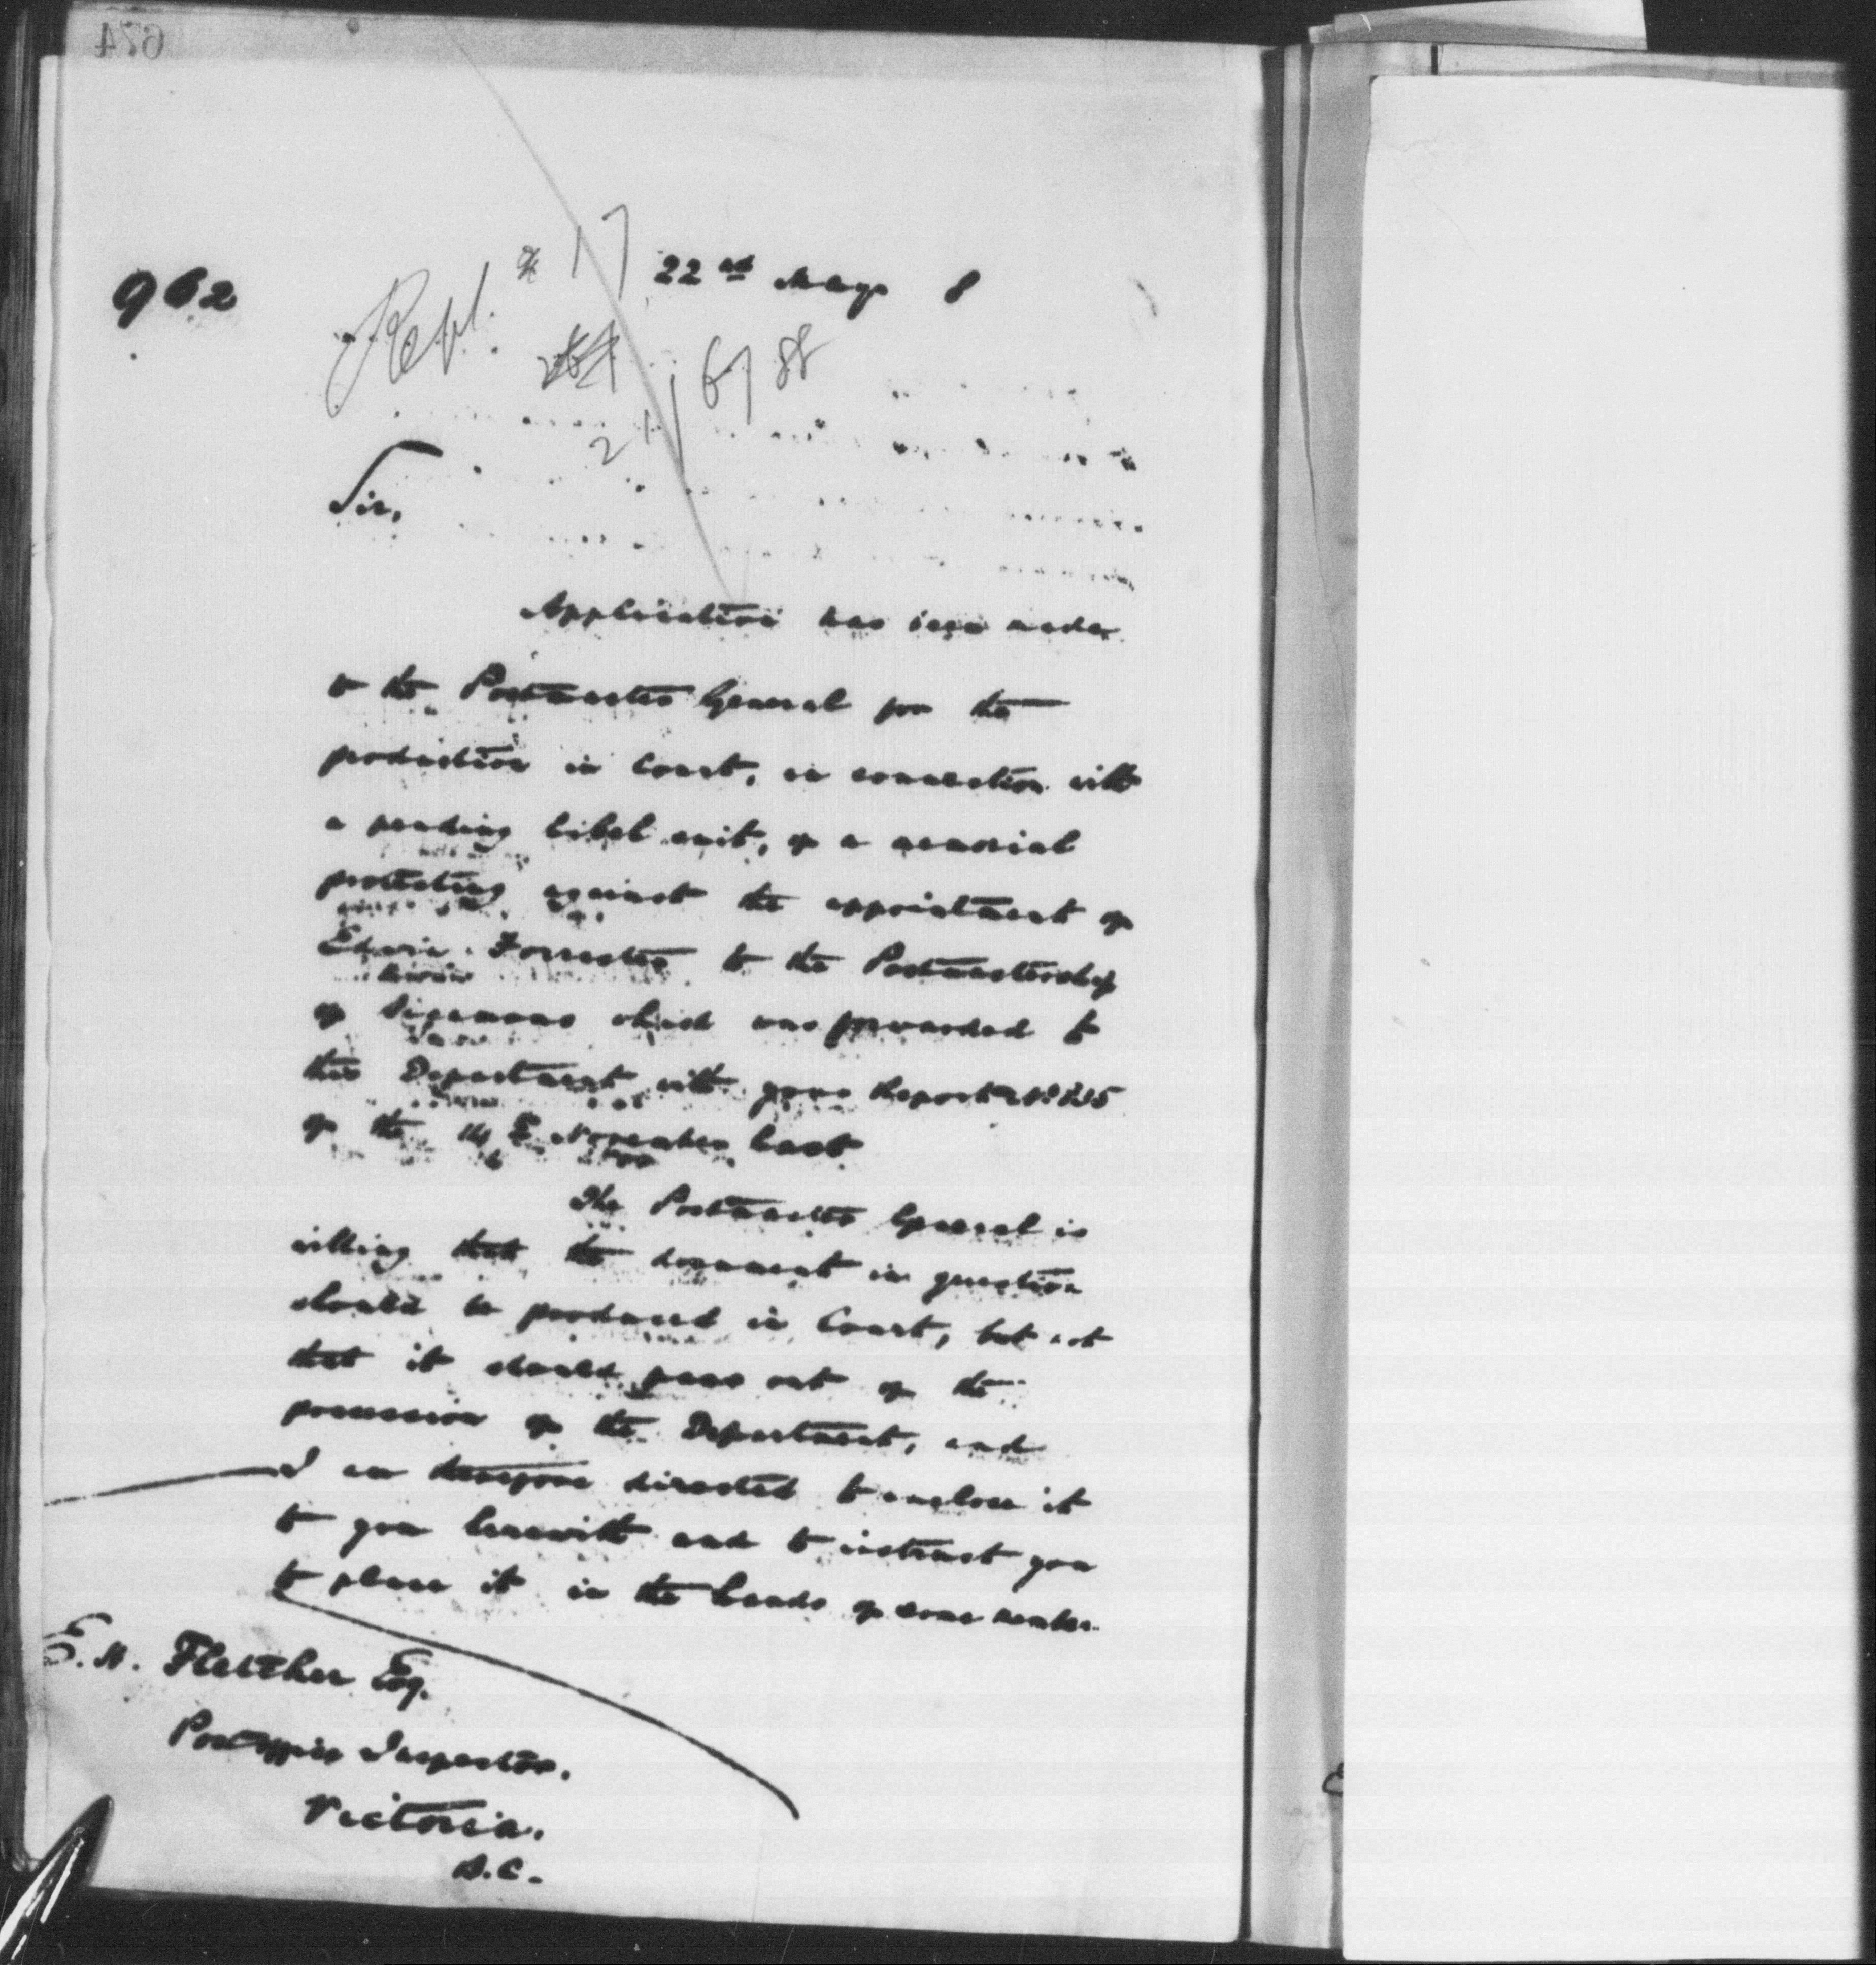 674
962
22nd May 8
Repl. # 17
21/6/88
Sir,
Application has been made
to the Postmaster General for the
production in Court, in connection with
a pending libel suit, of a memorial
protesting against the appointment of
Edwin Forrester to the Postmastership
of which was forwarded to
this Department with your Report No
of the 14th November last
The Postmaster General is
willing that the document in question
should be produced in Court, but not
that it should pass out of the
possession of the Department, and
I am therefore directed to enclose it
to you herewith and to instruct you
to place it in the hands of some member
E. H. Fletcher Esq.
Post Office Inspector.
Victoria.
B.C.